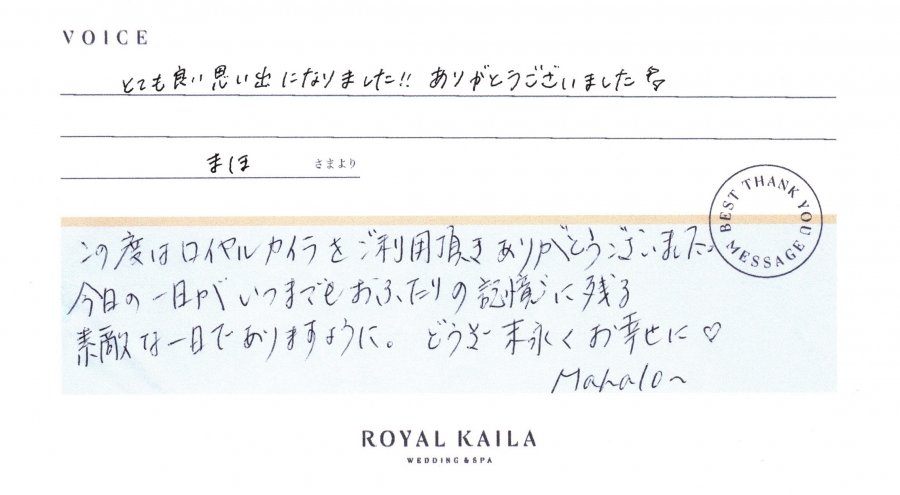 VOICE
とても良い思い出になりました!! ありがとうございました
まほ さまより
BEST THANK YOU MESSAGE
この度はロイヤルカイラをご利用頂きありがとうございました。
今日の一日がいつまでもおふたりの記憶に残る
素敵な一日でありますように。 どうぞ末永くお幸せに♡
Mahalo~
ROYAL KAILA
WEDDING & SPA